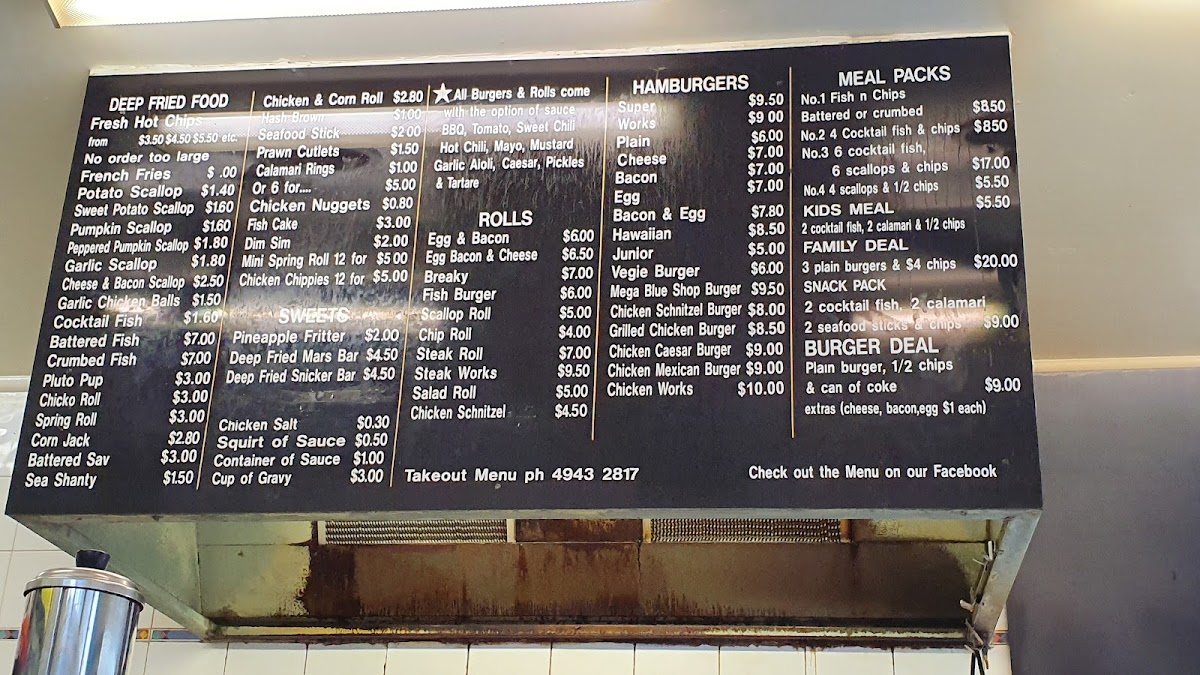 DEEP FRIED FOOD
Fresh Hot Chips
from $3.50 $4.50 $5.50 etc.
No order too large
French Fries $ .00
Potato Scallop $1.40
Sweet Potato Scallop $1.60
Pumpkin Scallop $1.60
Peppered Pumpkin Scallop $1.80
Garlic Scallop $1.80
Cheese & Bacon Scallop $2.50
Garlic Chicken Balls $1.50
Cocktail Fish $1.60
Battered Fish $7.00
Crumbed Fish $7.00
Pluto Pup $3.00
Chicko Roll $3.00
Spring Roll $3.00
Corn Jack $2.80
Battered Sav $3.00
Sea Shanty $1.50
Chicken & Corn Roll $2.80
Hash Brown $1.00
Seafood Stick $2 00
Prawn Cutlets $1.50
Calamari Rings $1.00
Or 6 for.... $5.00
Chicken Nuggets $0.80
Fish Cake $3.00
Dim Sim $2.00
Mini Spring Roll 12 for $5 00
Chicken Chippies 12 for $5.00
SWEETS
Pineapple Fritter $2.00
Deep Fried Mars Bar $4.50
Deep Fried Snicker Bar $4.50
Chicken Salt $0.30
Squirt of Sauce $0.50
Container of Sauce $1.00
Cup of Gravy $3.00
All Burgers & Rolls come
with the option of sauce
BBQ, Tomato, Sweet Chili
Hot Chili, Mayo, Mustard
Garlic Aioli, Caesar, Pickles
& Tartare
ROLLS
Egg & Bacon $6.00
Egg Bacon & Cheese $6.50
Breaky $7.00
Fish Burger $6.00
Scallop Roll $5.00
Chip Roll $4.00
Steak Roll $7.00
Steak Works $9.50
Salad Roll $5.00
Chicken Schnitzel $4.50
HAMBURGERS
Super $9.50
Works $9 00
Plain $6.00
Cheese $7.00
Bacon $7.00
Egg $7.00
Bacon & Egg $7.80
Hawaiian $8.50
Junior $5.00
Vegie Burger $6.00
Mega Blue Shop Burger $9.50
Chicken Schnitzel Burger $8.00
Grilled Chicken Burger $8.50
Chicken Caesar Burger $9.00
Chicken Mexican Burger $9.00
Chicken Works $10.00
MEAL PACKS
No.1 Fish n Chips
Battered or crumbed $8.50
No.2 4 Cocktail fish & chips $850
No.3 6 cocktail fish,
6 scallops & chips $17.00
No.4 4 scallops & 1/2 chips $5.50
KIDS MEAL $5.50
2 cocktail fish, 2 calamari & 1/2 chips
FAMILY DEAL
3 plain burgers & $4 chips $20.00
SNACK PACK
2 cocktail fish, 2 calamari
2 seafood sticks & chips $9.00
BURGER DEAL
Plain burger, 1/2 chips
& can of coke $9.00
extras (cheese, bacon,egg $1 each)
Takeout Menu ph 4943 2817
Check out the Menu on our Facebook